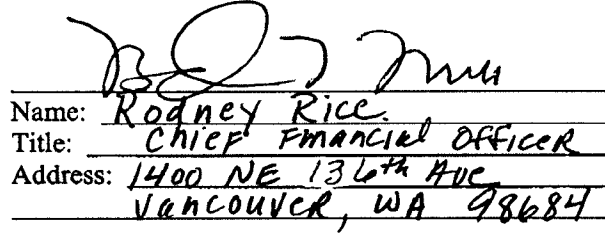 Name: Rodney Rice.
Title: Chief Financial Officer
Address: 1400 NE 136th Ave
Vancouver, WA 98684